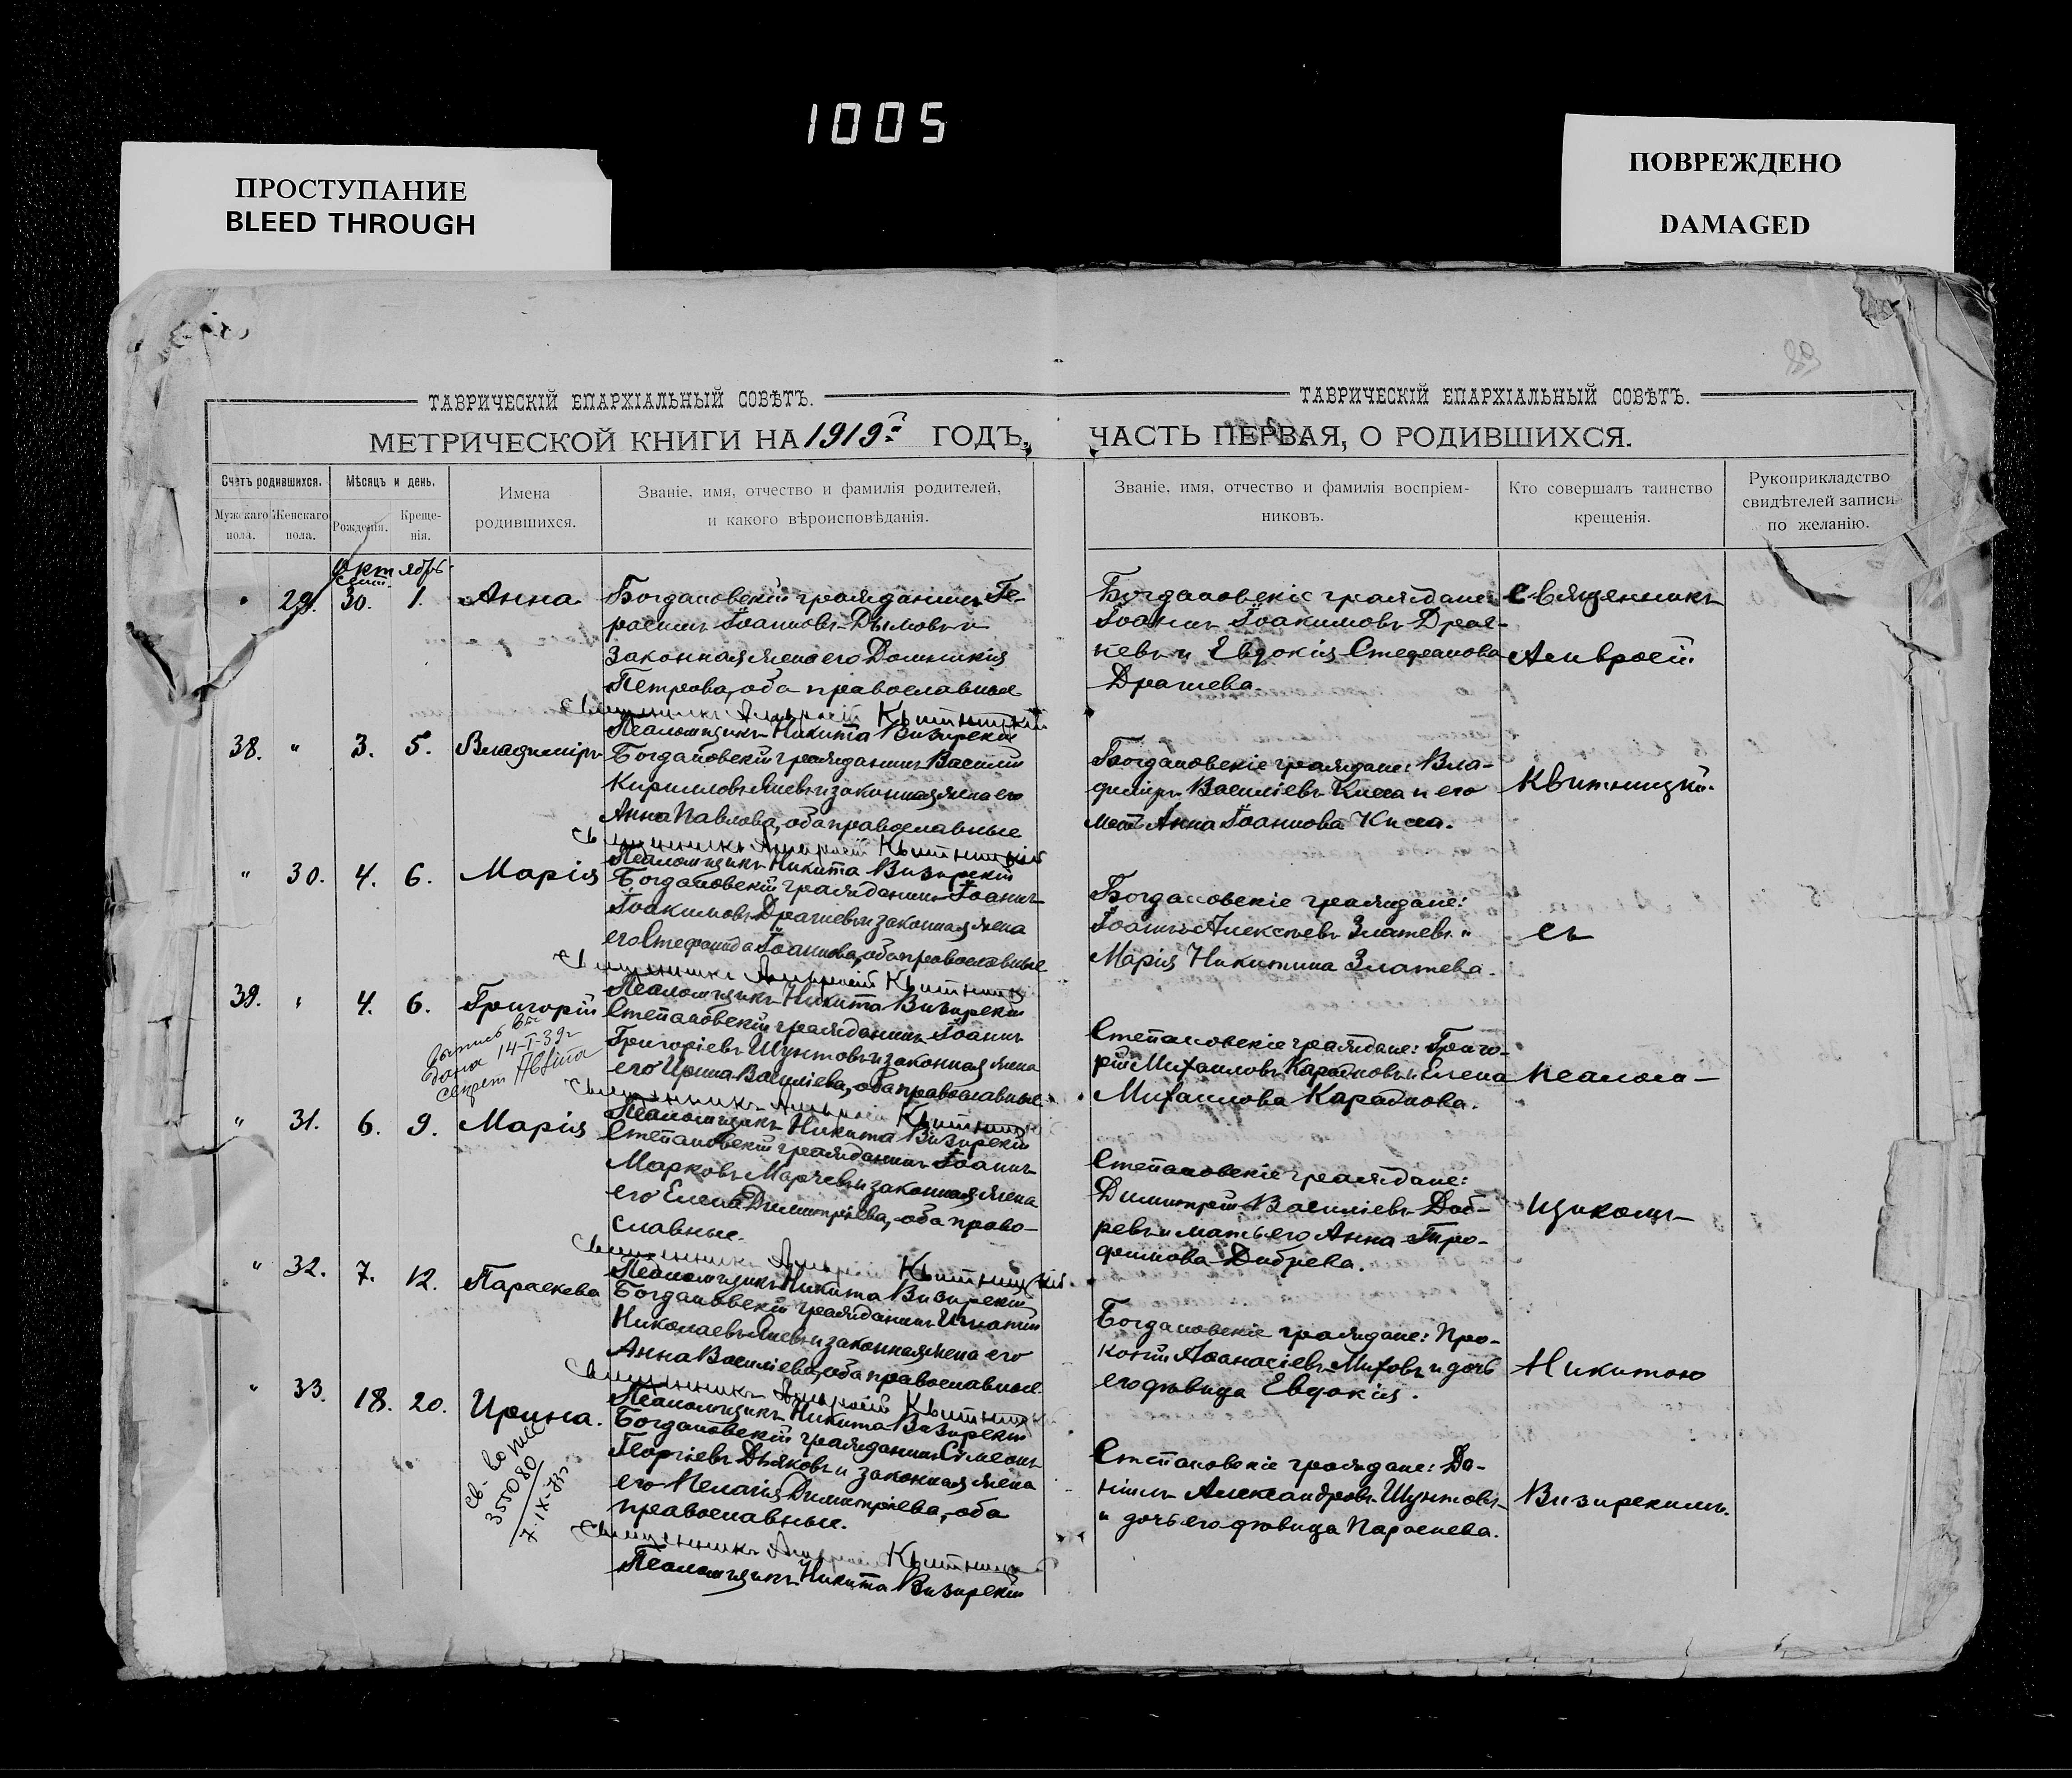 1005
ПРОСТУПАНИЕ
BLEED THROUGH
ПОВРЕЖДЕНО
DAMAGED
ТАВРИЧЕСКІЙ ЕПАРХІАЛЬНЫЙ СОВѢТЪ.
МЕТРИЧЕСКОЙ КНИГИ НА 1919 г ГОДЪ,
Счетъ родившихся.
Мужскаго пола.
Женскаго пола.
Мѣсяцъ и день.
Рожденія.
Креще-
нія.
Имена
родившихся.
Званіе, имя, отчество и фамилія родителей,
и какого вѣроисповѣданія.
ТАВРИЧЕСКІЙ ЕПАРХІАЛЬНЫЙ СОВѢТЪ.
ЧАСТЬ ПЕРВАЯ, О РОДИВШИХСЯ.
Званіе, имя, отчество и фамилія воспріем-
никовъ.
Кто совершалъ таинство
крещенія.
Рукоприкладство
свидѣтелей записи
по желанію.
Октябрь
сент.
29. 30. 1. Анна
Богдановскій гражданинъ Ге-
расимъ Іоанновъ Дымовъ и
законная жена его Домникія
Петрова, оба православные
Священникъ Амвросій Квитницкій
Псаломщикъ Никита Визирскій
Богдановскіе граждане:
Іоаннъ Іоакимовъ Драг-
невъ и Евдокія Стефанова
Драгнева.
Священникъ
Амвросій
38. " 3. 5. Владиміръ
Богдановскій гражданинъ Василій
Кирилловъ и законная жена его
Анна Павлова, оба православные
Священникъ Амвросій Квитницкій
Псаломщикъ Никита Визирскій
Богдановскіе граждане: Вла-
диміръ Василіевъ Киса и его
мать Анна Іоаннова Киса.
Квитницкій
" 30. 4. 6. Марія
Богдановскій гражданинъ Іоаннъ
Іоакимовъ Драгневъ и законная жена
его Стефанида Іоаннова, оба православные
Священникъ Амвросій Квитницкій
Псаломщикъ Никита Визирскій
Богдановскіе граждане:
Іоаннъ Алексѣевъ Златевъ и
Марія Никитина Златева.
съ
39. " 4. 6. Григорій
дана 14-I-39г
Степановскій гражданинъ Іоаннъ
Григоріевъ Шунтовъ и законная жена
его Ирина Василіева, оба православные
Священникъ Амвросій Квитницкій
Псаломщикъ Никита Визирскій
Степановскіе граждане: Григо-
рій Михаиловъ Карайковъ и Елена
Михаилова Карайкова.
псалом-
" 31. 6. 9. Марія
Степановскій гражданинъ Іоаннъ
Марковъ Марчевъ и законная жена
его Елена Димитріева, оба право-
славные.
Священникъ Амвросій Квитницкій
Псаломщикъ Никита Визирскій
Степановскіе граждане:
Димитрій Василіевъ Доб-
ревъ и мать его Анна Тро-
фимова Добрева.
щикомъ
" 32. 7. 12. Параскева
Богдановскій гражданинъ Игнатій
Николаевъ и законная жена его
Анна Василіева, оба православные.
Священникъ Амвросій Квитницкій
Псаломщикъ Никита Визирскій
Богдановскіе граждане: Про-
копій Аѳанасіевъ Митовъ и дочь
его дѣвица Евдокія.
Никитою
" 33. 18. 20. Ирина.
355080
7-IX-
Богдановскій гражданинъ Симеонъ
Георгіевъ Дьяковъ и законная жена
его Пелагія Димитріева, оба
православные.
Священникъ Амвросій Квитницкій
Псаломщикъ Никита Визирскій
Степановскіе граждане: Да-
ніилъ Александровъ Шунтовъ
и дочь его дѣвица Параскева.
Визирскимъ.